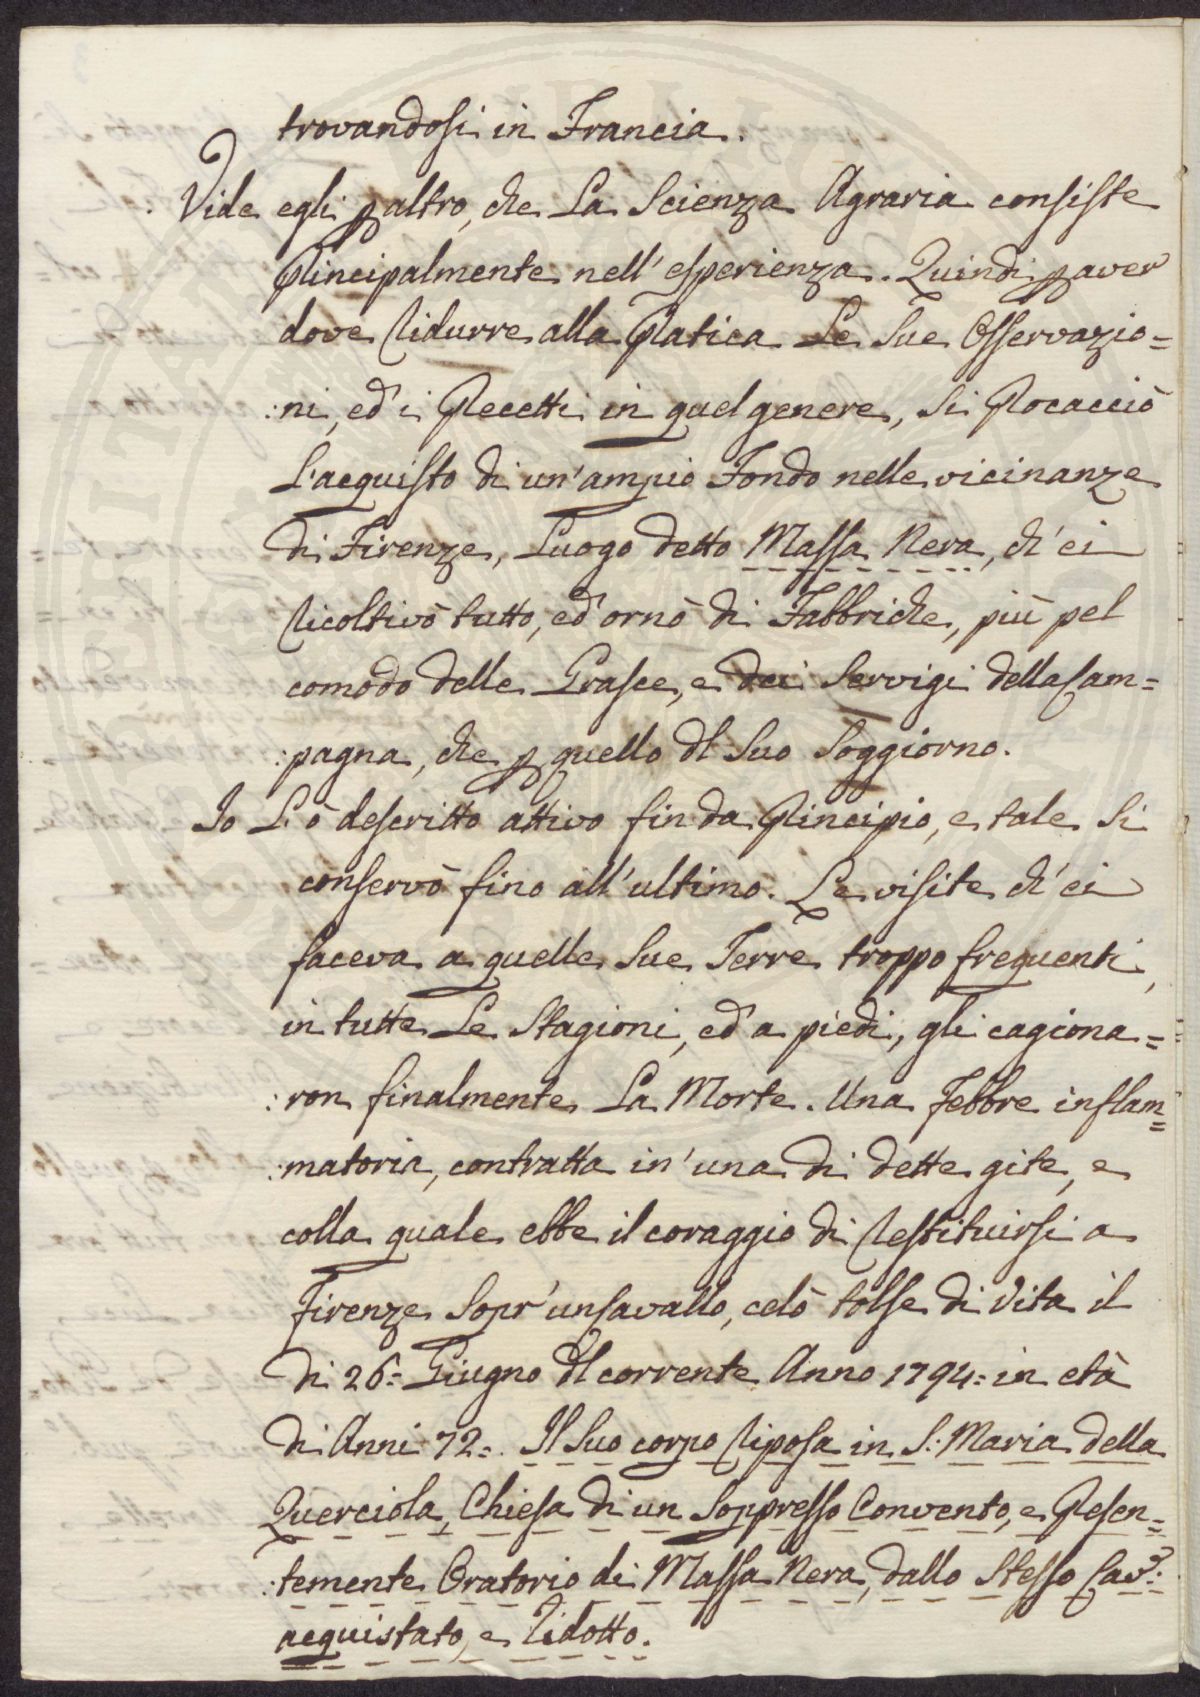 trovandosi in Francia.
Vide egli p altro, che La Scienza Agraria consiste
Principalmente nell'esperienza. Quindi p aver
dove ridurre alla Pratica Le Sue Osservazio=
:ni, ed i Precetti in quel genere, Si Procacciò
L'acquisto di un'ampio Fondo nelle vicinanze
di Firenze, Luogo detto Massa Nera, ch'ei
ricoltivò tutto, ed ornò di Fabbriche, più pel
comodo delle Grasce, e dei Servigi della Cam=
:pagna, che p quello dl Suo Soggiorno.
Io L'ò descritto attivo fin da Principio, e tale Si
conservò fino all'ultimo. Le visite ch'ei
faceva a quelle Sue Terre troppo frequenti,
in tutte Le Stagioni, ed a piedi, gli cagiona=
:ron finalmente La Morte. Una Febbre inflam=
:matoria, contratta in'una di dette gite, e
colla quale ebbe il coraggio di restituirsi a
Firenze Sopr'un Cavallo, celò tolse di Vita il
di 26= Giugno dl corrente Anno 1794= in età
di Anni 72=. Il Suo corpo riposa in S: Maria della
Querciola, Chiesa di un Soppresso Convento, e Presen=
:temente Oratorio di Massa Nera, dallo Stesso Cav:
acquistato, e ridotto.